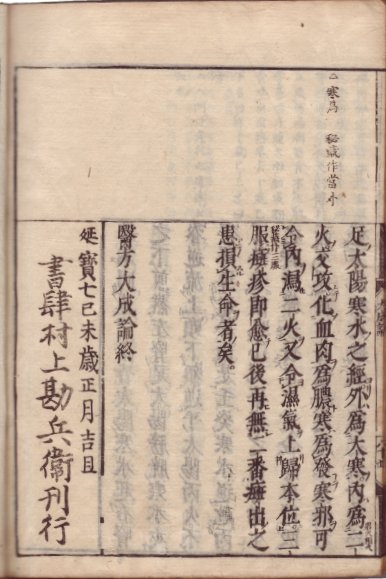 二寒爲　秘藏作當小
足太陽寒水之經外爲大寒內爲三
火交攻化血肉爲膿寒爲發寒邪可
令內瀉二火又令濕氣上歸本位三
服瘡疹即愈已後再無二番瘡出之
患損生命者矣。
醫方大成論終
延寶七己未歳正月吉旦
書肆村上勘兵衛刊行